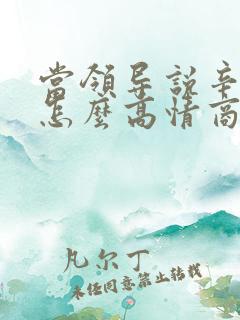 當領导說辛
怎麽高情商
凡尔丁
未经同意禁止转载